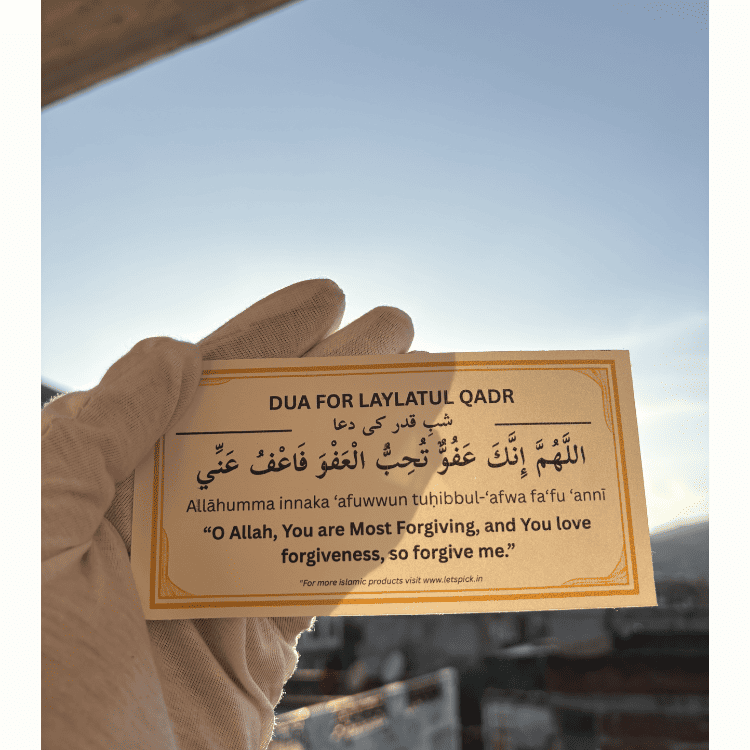 DUA FOR LAYLATUL QADR
شبِ قدر کی دعا
اللَّهُمَّ إِنَّكَ عَفُوٌّ تُحِبُّ الْعَفْوَ فَاعْفُ عَنِّي
Allāhumma innaka ‘afuwwun tuḥibbul-‘afwa fa‘fu ‘annī
“O Allah, You are Most Forgiving, and You love
forgiveness, so forgive me.”
"For more islamic products visit www.letspick.in